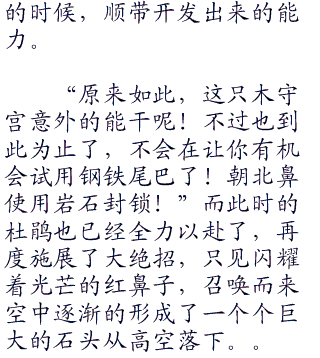 的时候，顺带开发出来的能
力。
“原来如此，这只木守
宫意外的能干呢！不过也到
此为止了，不会在让你有机
会试用钢铁尾巴了！朝北鼻
使用岩石封锁！”而此时的
杜鹃也已经全力以赴了，再
度施展了大绝招，只见闪耀
着光芒的红鼻子，召唤而来
空中逐渐的形成了一个个巨
大的石头从高空落下。。